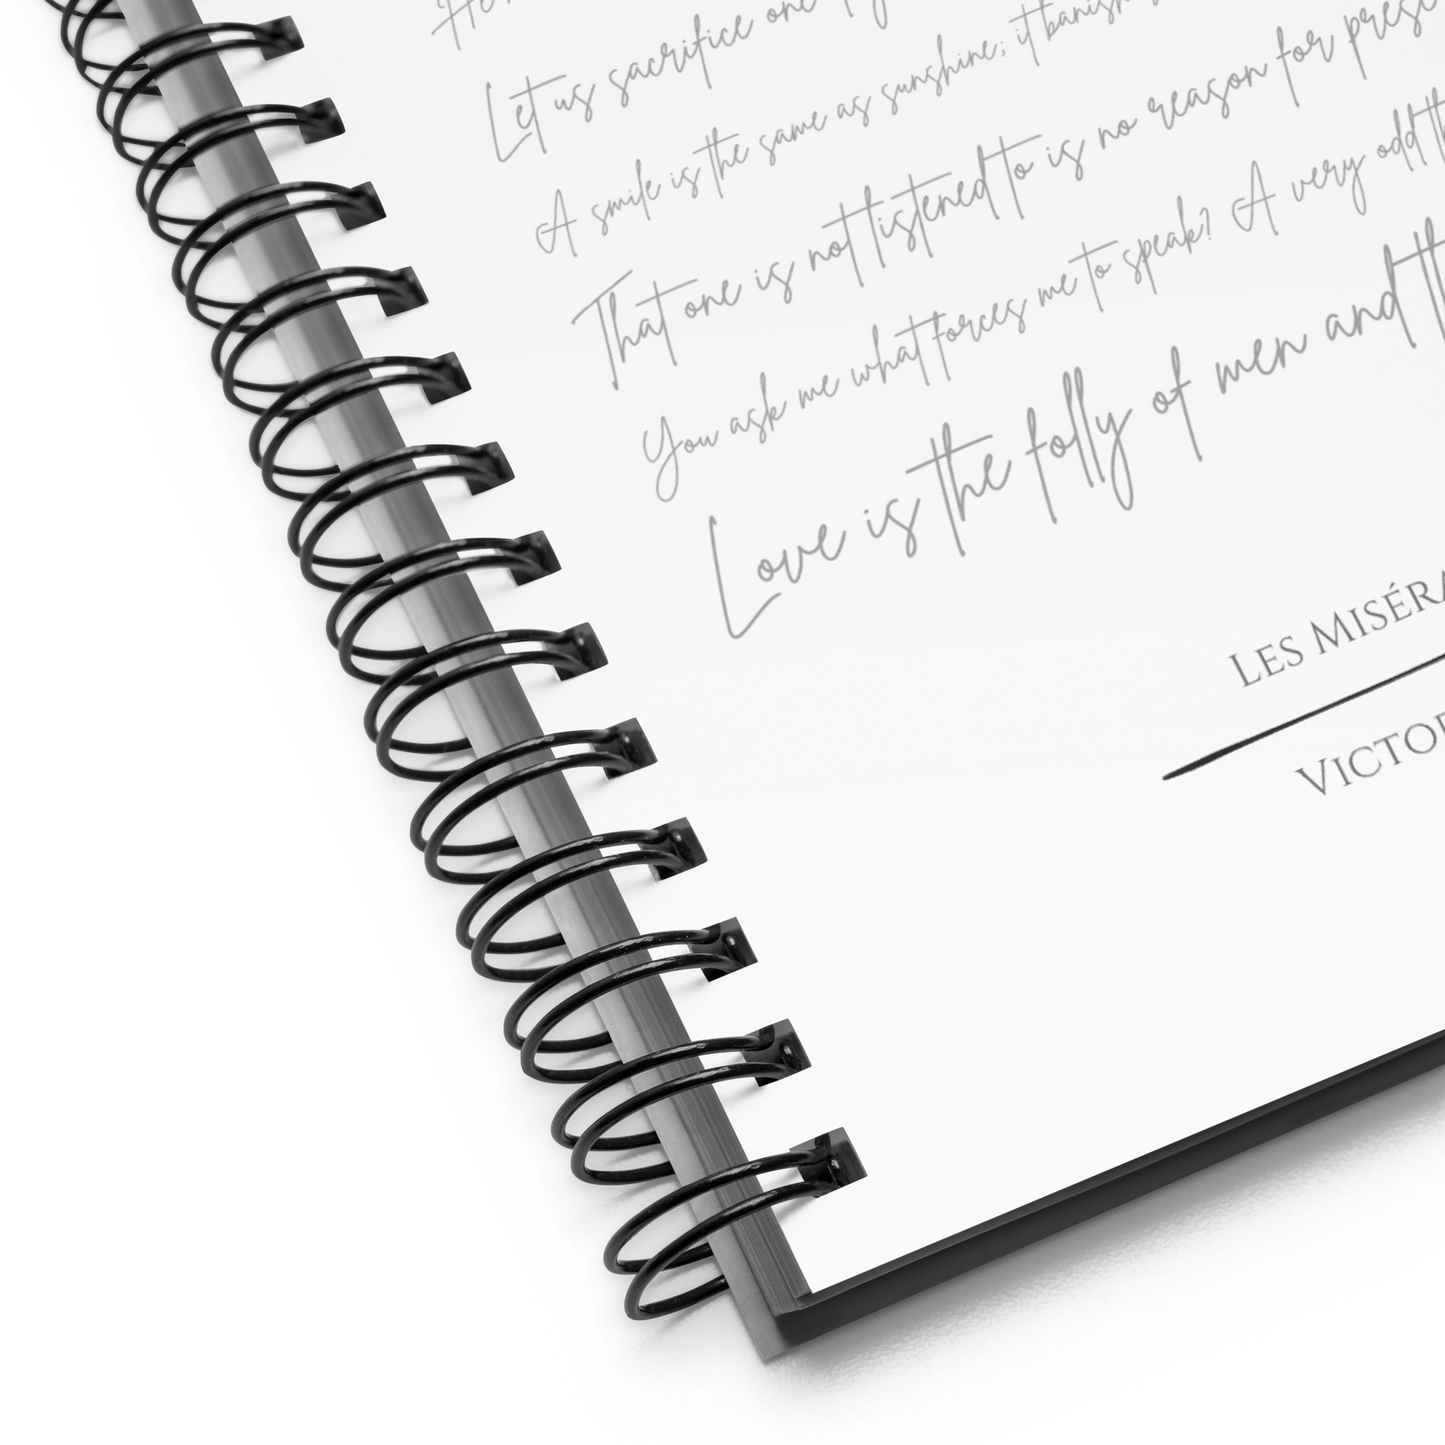 Let us sacrifice one
A smile is the same as sunshine; it
That one is not listened to is no reason for
You ask me what forces me to speak? A very odd
Love is the folly of men and
LES
VICTOR